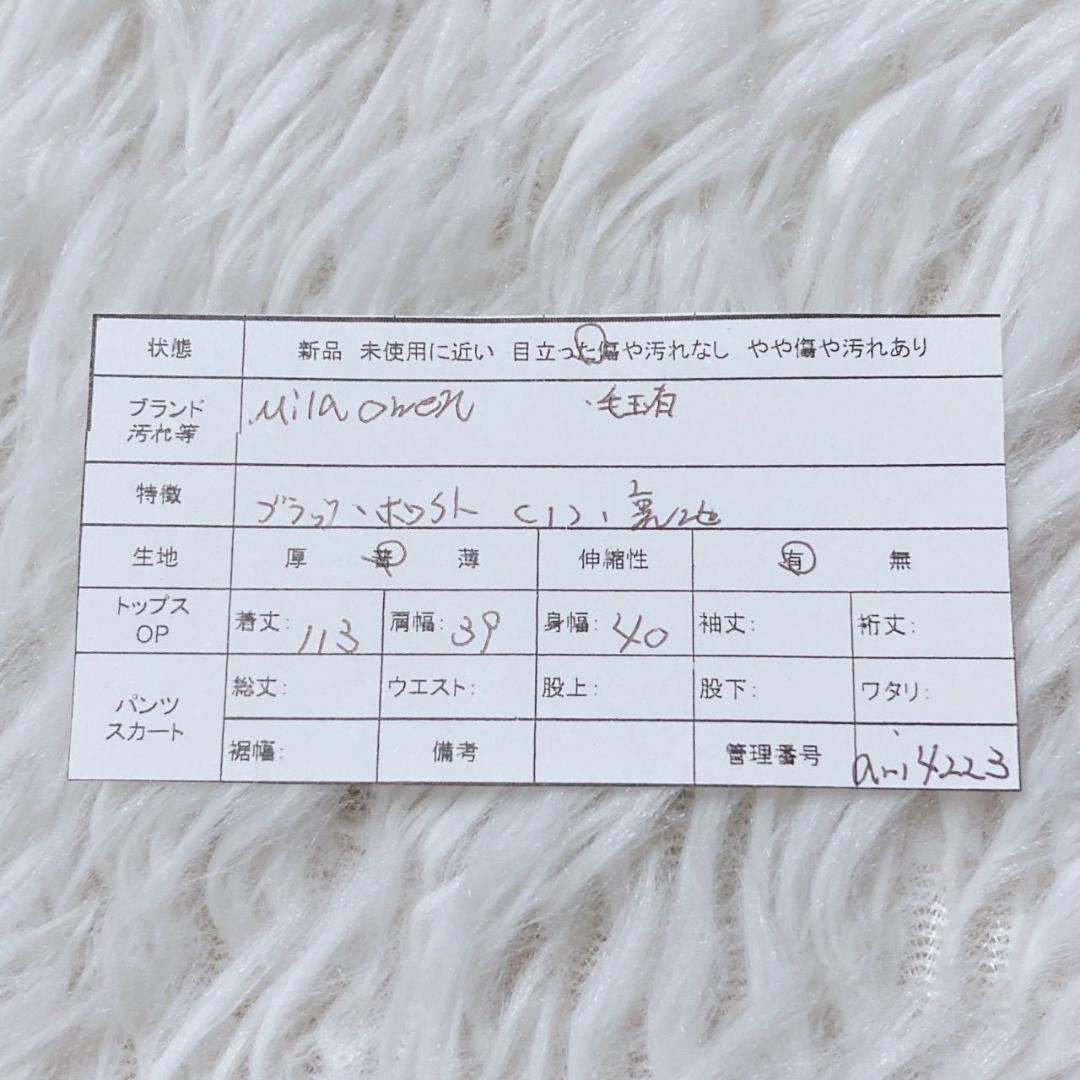 状態 新品 未使用に近い 目立った傷や汚れなし やや傷や汚れあり
ブランド 汚れ等 Mila owen ・毛玉有
特徴 ブラック、ポケット (1)、裏地
生地 厚 普 薄 伸縮性 有 無
トップス OP 着丈: 113 肩幅: 39 身幅: 40 袖丈: 裄丈:
パンツ スカート 総丈: ウエスト: 股上: 股下: ワタリ:
裾幅: 備考 管理番号 ami4223